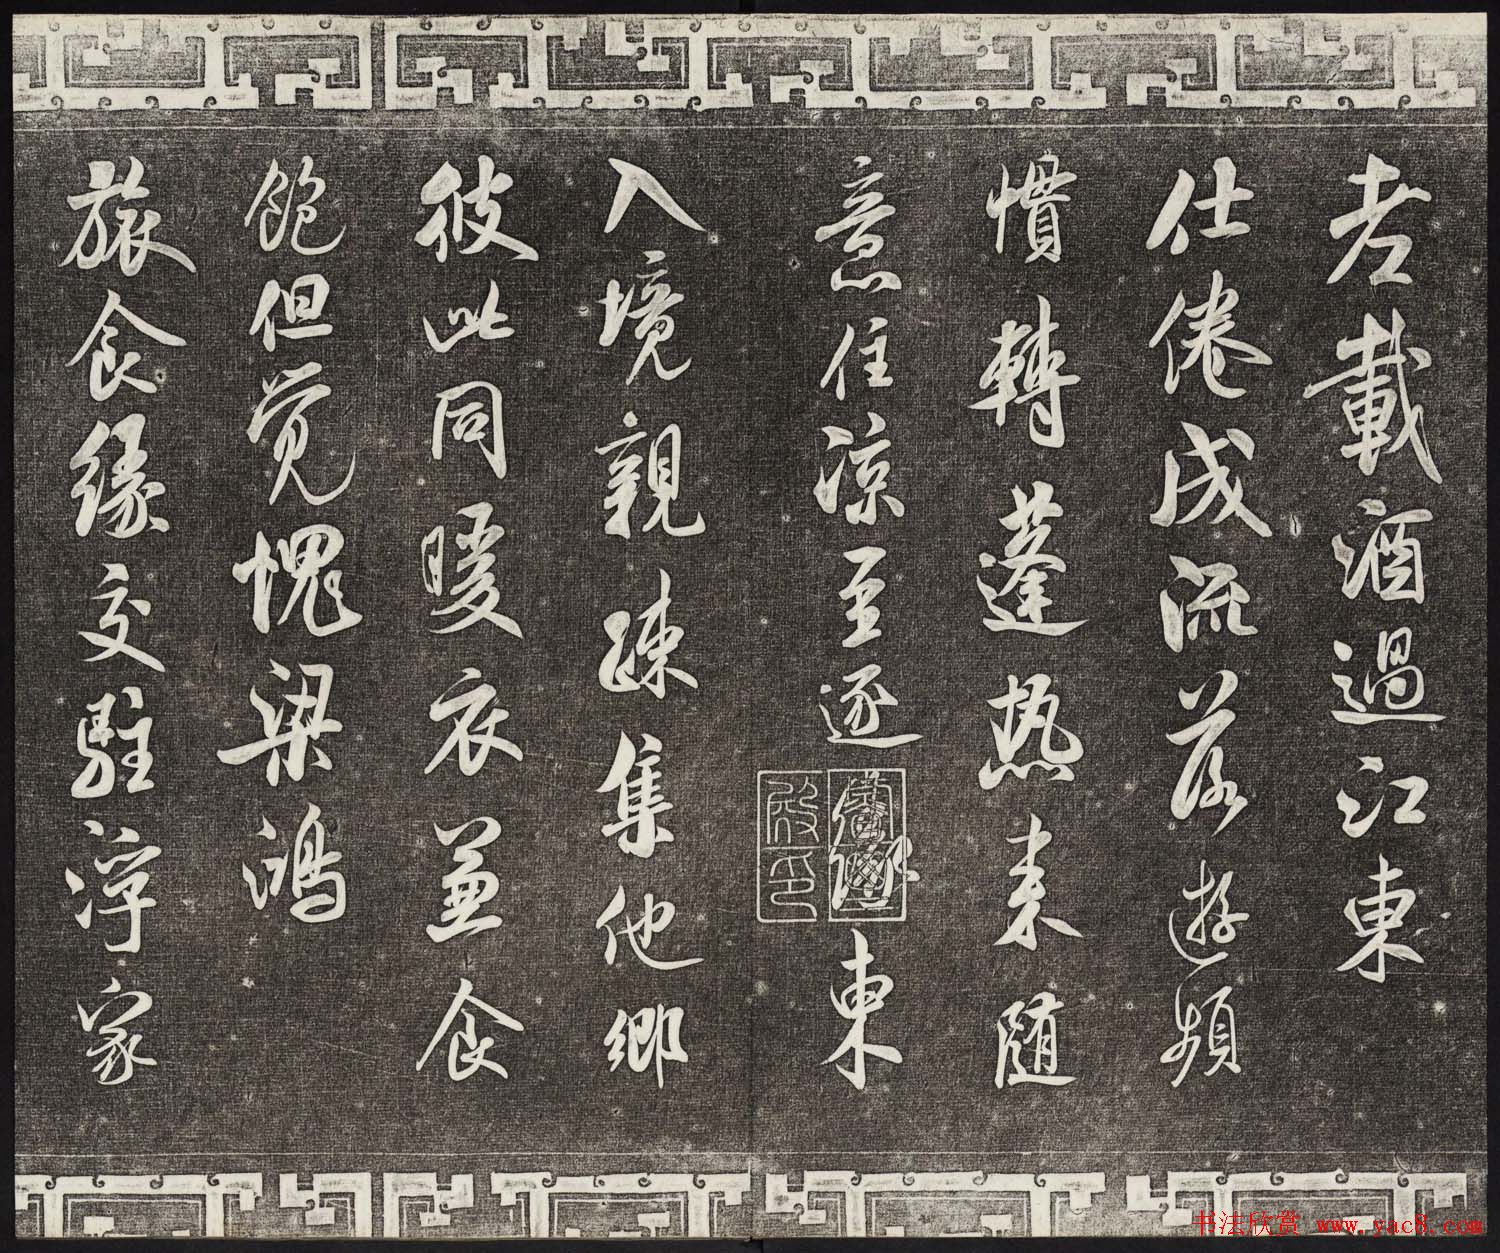 老載酒過江東
仕倦成流落遊頻
慣轉蓬热来隨
意住涼至逐緣東
入境親疎集他鄉
彼此同暖衣兼食
飽但覺愧梁鴻
旅食緣交駐浮家
书法欣赏 www.yac8.com